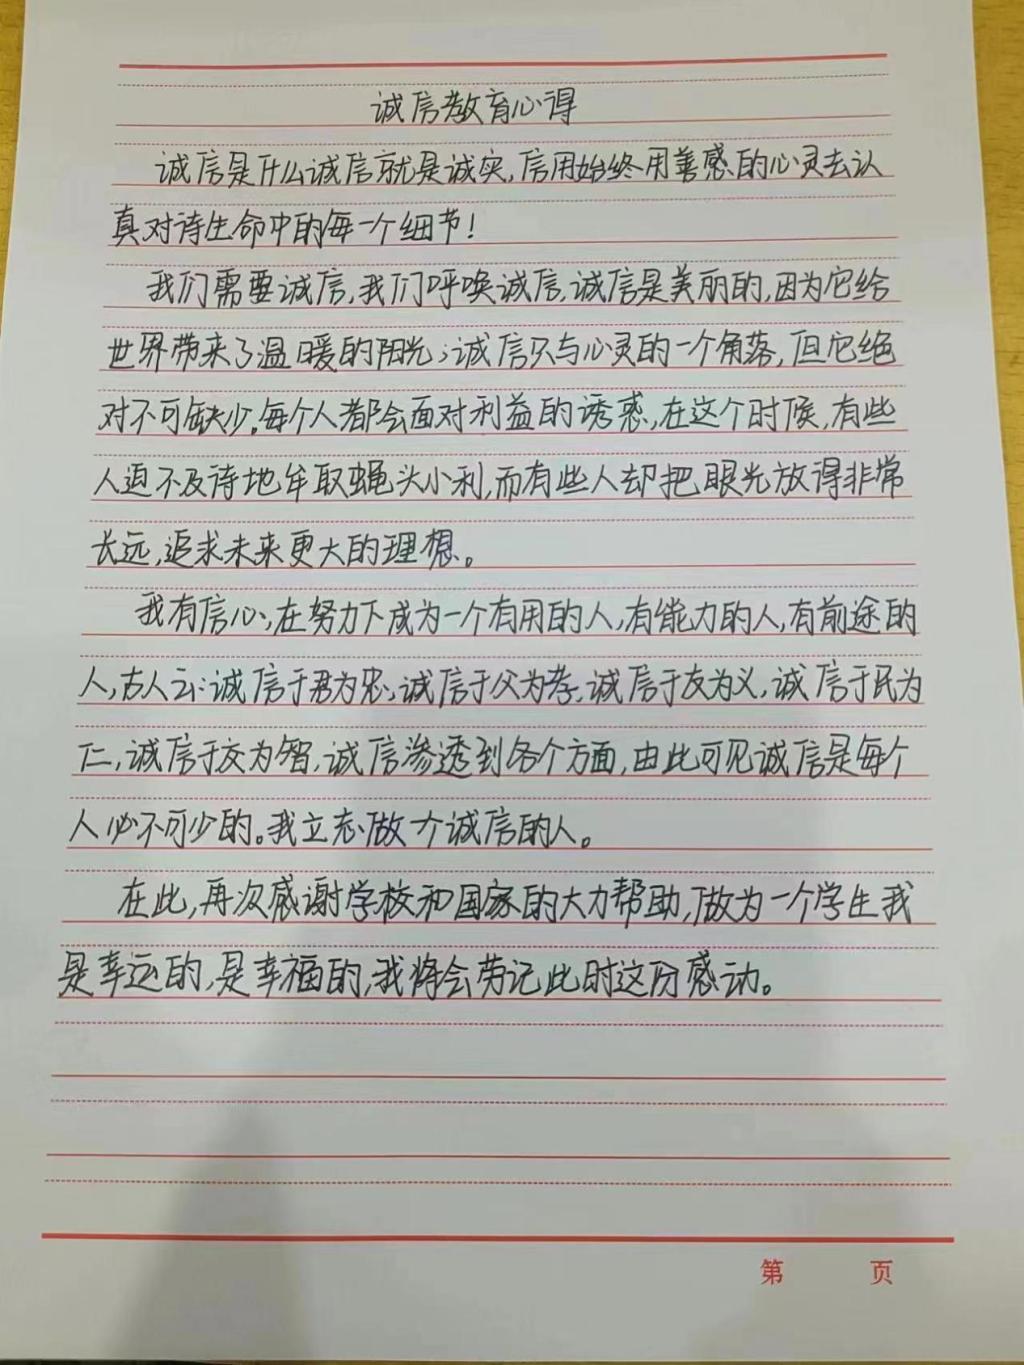 诚信教育心得
诚信是什么诚信就是诚实,信用始终用善感的心灵去认
真对待生命中的每一个细节!
我们需要诚信,我们呼唤诚信,诚信是美丽的,因为它给
世界带来了温暖的阳光;诚信只与心灵的一个角落,但它绝
对不可缺少。每个人都会面对利益的诱惑,在这个时候,有些
人迫不及待地牟取蝇头小利,而有些人却把眼光放得非常
长远,追求未来更大的理想。
我有信心,在努力下成为一个有用的人,有能力的人,有前途的
人,古人云:诚信于君为忠,诚信于父为孝,诚信于友为义,诚信于民为
仁,诚信于交为智,诚信渗透到各个方面,由此可见诚信是每个
人必不可少的。我立志做个诚信的人。
在此,再次感谢学校和国家的大力帮助,做为一个学生我
是幸运的,是幸福的,我将会劳记此时这份感动。
第 页